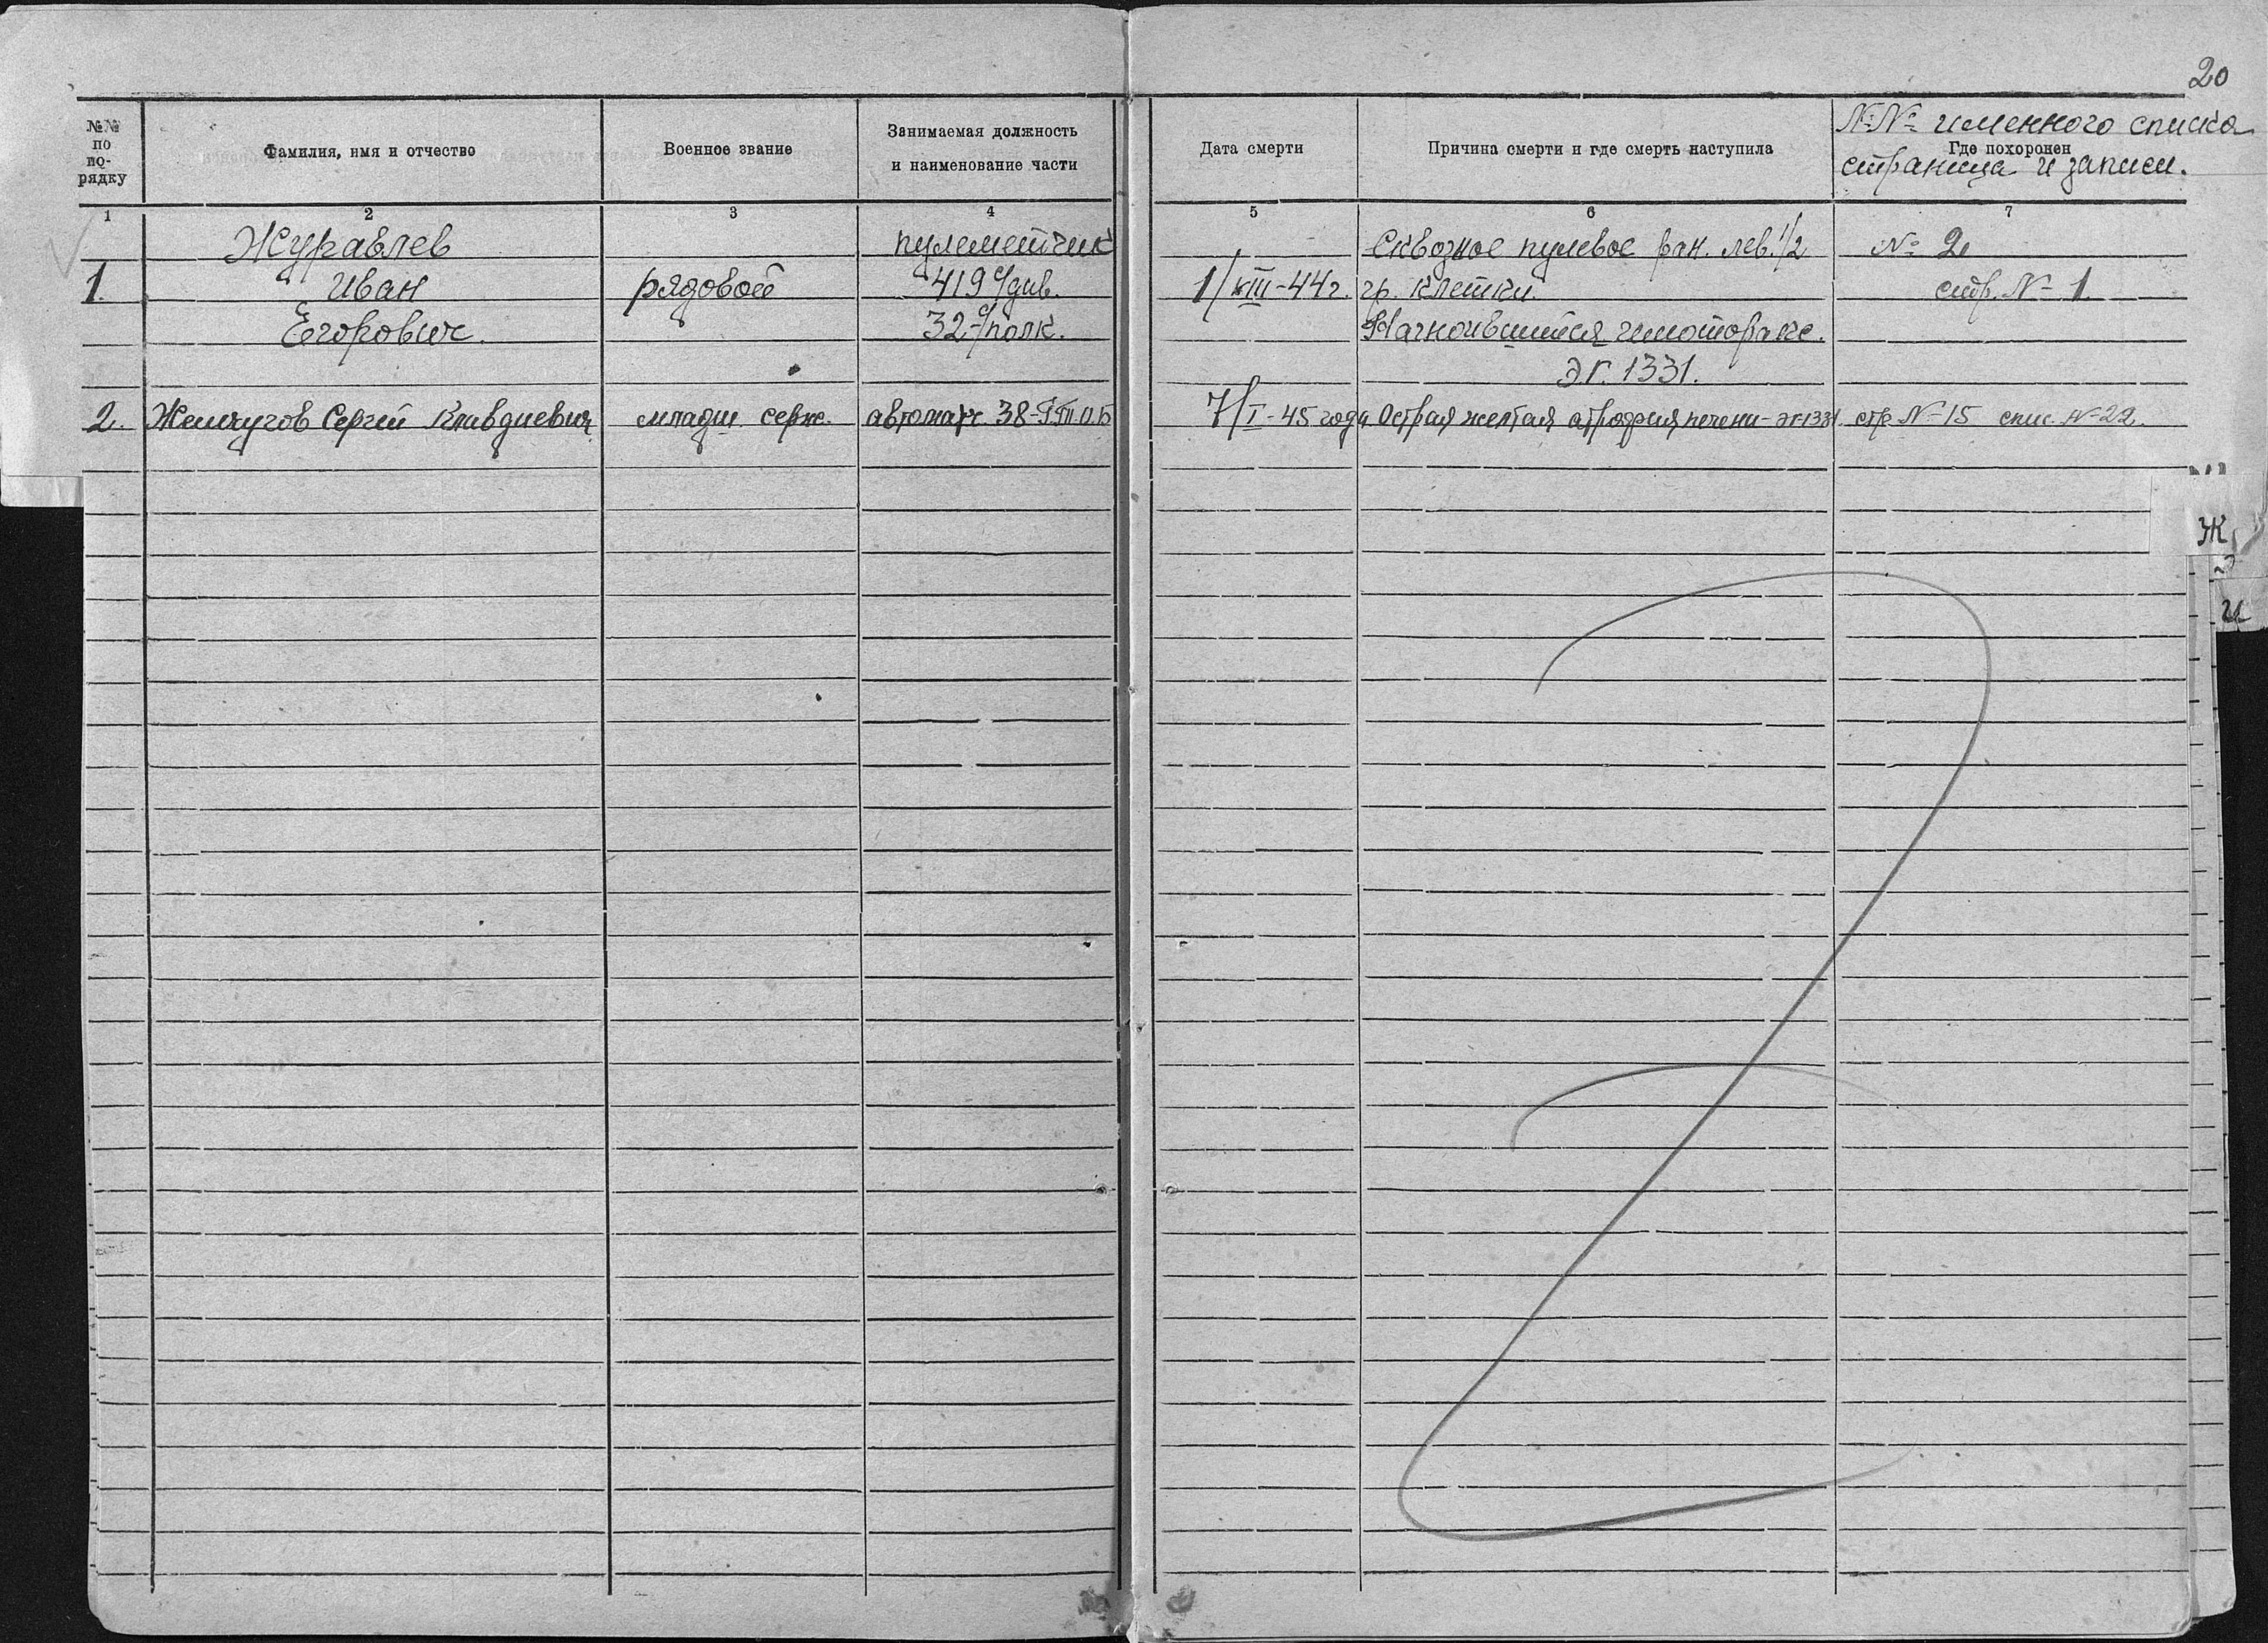 20
№№ по по-рядку
Фамилия, имя и отчество
Военное звание
Занимаемая должность
и наименование части
Дата смерти
Причина смерти и где смерть наступила
№№ именного списка
Где похоронен
страница и записи.
1 2 3 4 5 6 7
Журавлев пулеметчик Сквозное пулевое ран. лев. 1/2 № 2
1. Иван рядовой 419 с/див. 1/VIII-44г. гр. клетки. стр. № 1.
Егорович. 32 с/полк. Нагноившийся гемоторакс.
Э.Г. 1331.
2. Жемчугов Сергей Клавдиевич младш. серж. автоматч. 38- 7/I-45 года Острая желтая атрофия печени-эг-1331. стр. №-15 спис. №-22.
Ж
И